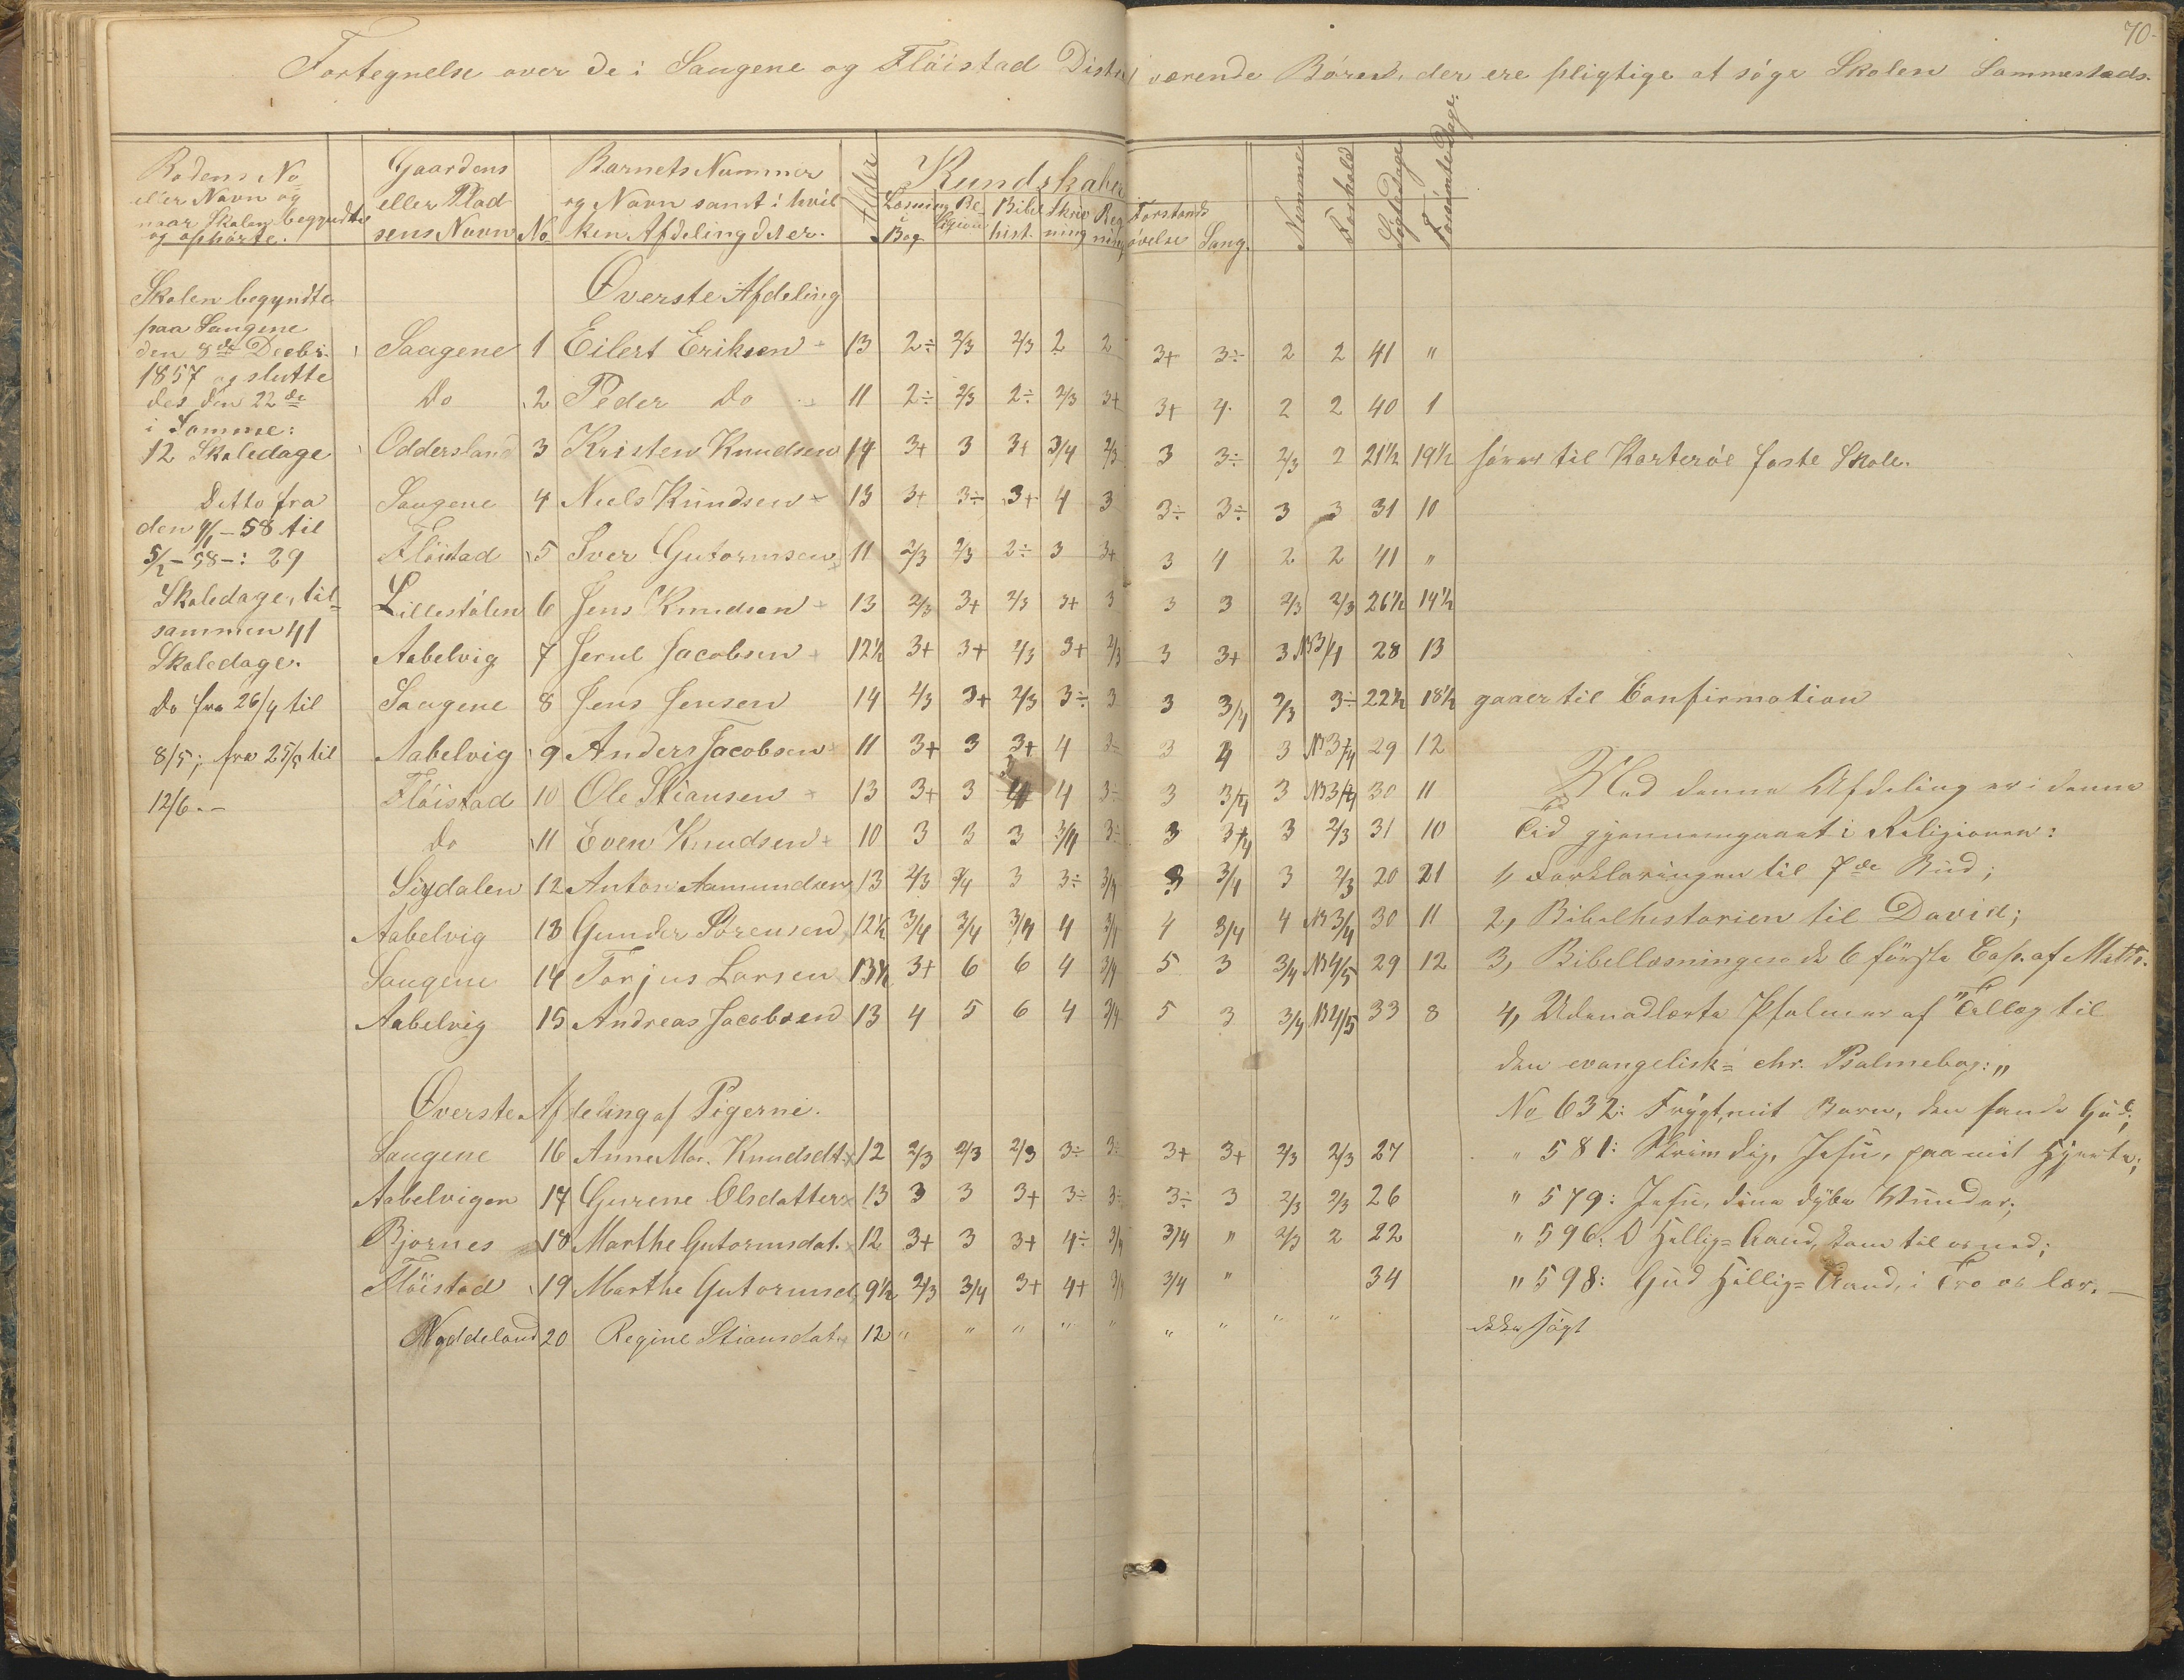 70.
Fortegnelse over de i Saugene og Flöistad Distr værende Börn, der ere pligtige at söge Skolen Sammestads.
Rodens No eller Navn og naar Skolen begyndte og ophörte.
Gaardens eller Pladsens Navn
No
Barnets Nummer og Navn samt i hvilken Afdeling det er.
Alder
Kundskaber
Læsning i Bog
Religion
Bibelhist.
Skrivning
Regning
Forstandsövelse
Sang.
Nemme
Forhold
Sögte Dage
Forsömte Dage.
Skolen begyndte
paa Saugene
den 8de Decbr.
1857 og slutte
des den 22de
i Samme:
12 Skoledage
Ditto fra
den 4/1 - 58 til
5/2 - 58 -: 29
Skoledage, til=
sammen 41
Skoledage.
Do fra 26/4 til
8/5; fra 25/5 til
12/6.-
Överste Afdeling
Saugene 1 Eilert Eriksen 13 2÷ 2/3 2/3 2 2 3+ 3÷ 2 2 41 "
Do 2 Peder Do 11 2÷ 2/3 2÷ 2/3 3+ 3+ 4. 2 2 40 1
Oddersland 3 Kristen Knudsen 14 3+ 3 3+ 3/4 2/3 3 3÷ 2/3 2 21½ 19½ hörer til Korteröe faste Skole.
Saugene 4 Niels Knudsen 13 3+ 3÷ 3+ 4 3 3÷ 3÷ 3 3 31 10
Flöistad 5 Iver Gutormsen 11 2/3 2/3 2÷ 3 3+ 3 4 2 2 41 "
Lillestölen 6 Jens Knudsen 13 2/3 3+ 2/3 3+ 3 3 3 2/3 2/3 26½ 14½
Aabelvig 7 Jerul Jacobsen 12½ 3+ 3+ 2/3 3+ 2/3 3 3+ 3 NB 3/4 28 13
Saugene 8 Jens Jensen 14 2/3 3+ 2/3 3÷ 3 3 3/4 2/3 3÷ 22½ 18½ gaaer til Confirmation
Aabelvig 9 Anders Jacobsen 11 3+ 3 3+ 4 3÷ 3 4 3 NB 3/4 29 12
Flöistad 10 Ole Stiansen 13 3+ 3 4 4 3÷ 3 3/4 3 NB 3/4 30 11
Do 11 Even Knudsen 10 3 3 3 3/4 3÷ 3 3/4 3 2/3 31 10
Sigdalen 12 Anton Aamundsen 13 2/3 3/4 3 3÷ 3/4 3 3/4 3 2/3 20 21
Aabelvig 13 Gunder Sörensen 12½ 3/4 3/4 3/4 4 3/4 4 3/4 4 NB 3/4 30 11
Saugene 14 Torjus Larsen 13½ 3+ 6 6 4 3/4 5 3 3/4 NB 4/5 29 12
Aabelvig 15 Andreas Jacobsen 13 4 5 6 4 3/4 5 3 3/4 NB 4/5 33 8
Överste Afdeling af Pigerne.
Saugene 16 Anne Mar. Knudsdt. 12 2/3 2/3 2/3 3÷ 3÷ 3+ 3+ 2/3 2/3 27
Aabelvigen 17 Gurene Olsdatter 13 3 3 3+ 3÷ 3÷ 3÷ 3 2/3 2/3 26
Bjornes 18 Marthe Gutormsdat. 12 3+ 3 3+ 4÷ 3/4 3/4 " 2/3 2 22
Flöistad 19 Marthe Gutormsd. 9½ 2/3 3/4 3+ 4+ 3/4 3/4 " 34
Nøddeland 20 Regine Stiansdat. 12 " " " " " " " " " ikke sögt
Med denne Afdeling er i denne
Tid gjennemgaaet i Religionen:
1, Forklaringen til 7de Bud;
2, Bibelhistorien til David;
3, Bibellæsningen de 6 förste Cap. af Matth.
4, Udenadlærte Psalmer af "Tillæg til
den evangelisk= chr. Psalmebog: "
No 632: Frygt, mit Barn, den sande Gud;
" 581: Skriv dig, Jesu, paa mit Hjerte;
" 579: Jesu, dine dybe Wunder;
" 596: O Hellig=Aand, kom til os ned;
" 598: Gud Hellig=Aand, i Tro os lær. —